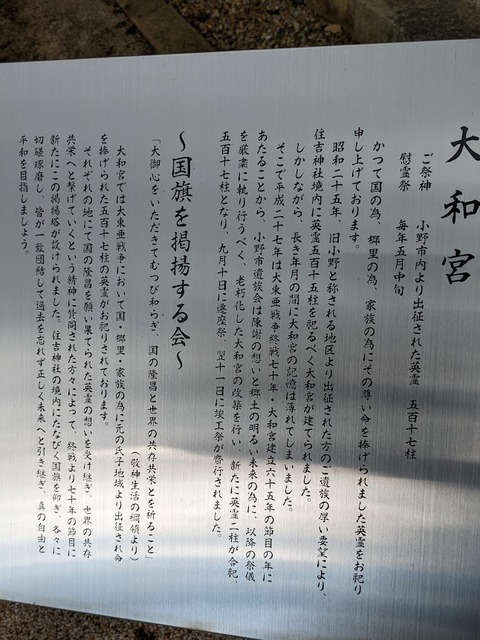 大和宮
ご祭神　小野市内より出征された英霊　五百十七柱
慰霊祭　毎年五月中旬
かつて国の為、郷里の為、家族の為にその尊い命を捧げられました英霊をお祀り
申し上げております。
昭和二十五年、旧小野と称される地区より出征された方のご遺族の厚い要望により、
住吉神社境内に英霊五百十五柱を祀るべく大和宮が建てられました。
しかしながら、長き年月の間に大和宮の記憶は薄れてしまいました。
そこで平成二十七年は大東亜戦争終戦七十年・大和宮建立六十五年の節目の年に
あたることから、小野市遺族会は陳謝の想いと郷土の明るい未来の為に、以降の祭儀
を厳粛に執り行うべく、老朽化した大和宮の改築を行い、新たに英霊二柱が合祀、
五百十七柱となり、九月十日に遷座祭、翌十一日に竣工祭が斎行されました。
〜国旗を掲揚する会〜
「大御心をいただきてむつび和らぎ、国の隆昌と世界の共存共栄とを祈ること」
（敬神生活の綱領より）
大和宮では大東亜戦争において国・郷里・家族の為に元の氏子地域より出征され命
を捧げられた五百十七柱の英霊がお祀りされております。
それぞれの地にて国の隆昌を願い果てられた英霊の想いを受け継ぎ、世界の共存
共栄へと繋げていくという精神に賛同された方々によって、終戦より七十年の節目に
新たにこの掲揚塔が設けられました。住吉神社の境内にたなびく国旗を仰ぎ、各々に
切磋琢磨し、皆が一致団結して過去を忘れず正しく未来へと引き継ぎ、真の自由と
平和を目指しましょう。